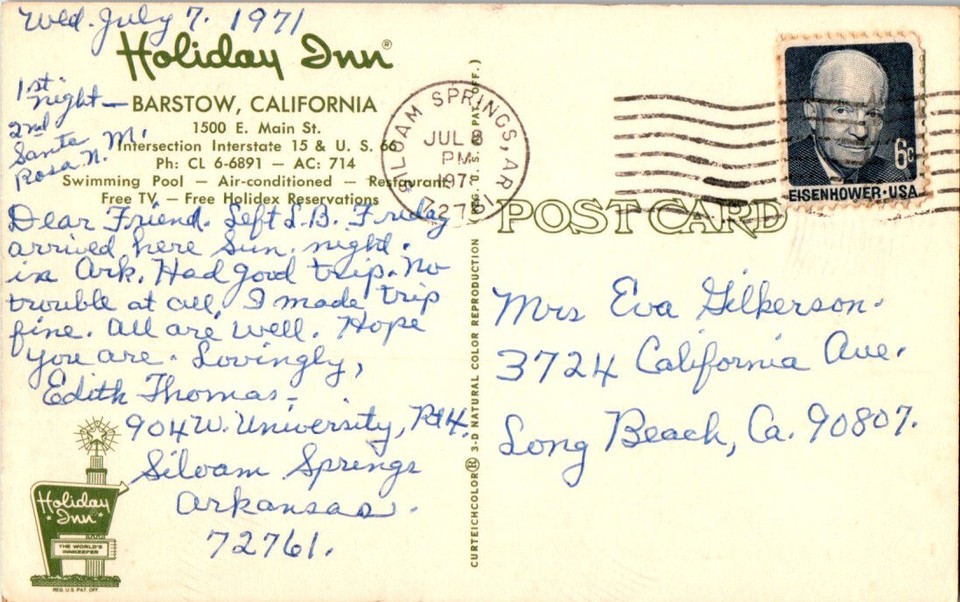 Wed. July 7. 1971
Holiday Inn®
1st night—
BARSTOW, CALIFORNIA
2nd
Santa
Rosa N. M.
1500 E. Main St.
Intersection Interstate 15 & U. S. 66
Ph: CL 6-6891 — AC: 714
Swimming Pool — Air-conditioned — Restaurant
Free TV — Free Holidex Reservations
Dear Friend. Left L.B. Friday
arrived here Sun. night.
in Ark. Had good trip. No
trouble at all, I made trip
fine. All are well. Hope
you are. Lovingly,
Edith Thomas.
904 W. University, Rt 4.
Siloam Springs
Arkansas.
72761.
Holiday
Inn®
THE WORLD'S
INNKEEPER
REG. U.S. PAT. OFF.
CURTEICHCOLOR® 3-D NATURAL COLOR REPRODUCTION (REG. U.S. PAT. OFF.)
SILOAM SPRINGS, AR
JUL 8
PM
POST CARD
6c
EISENHOWER·USA
Mrs Eva Gilkerson.
3724 California Ave.
Long Beach, Ca. 90807.